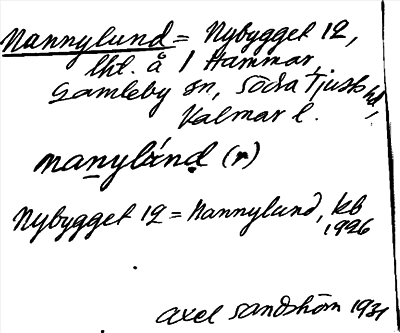 Nannylund = Nybygget 12,
lht. å 1 Hammar,
Gamleby sn, Södra Tjusts hd,
Kalmar l.
nanylànd (n)
Nybygget 12 = Nannylund, kb
1926
Axel Sandström 1931